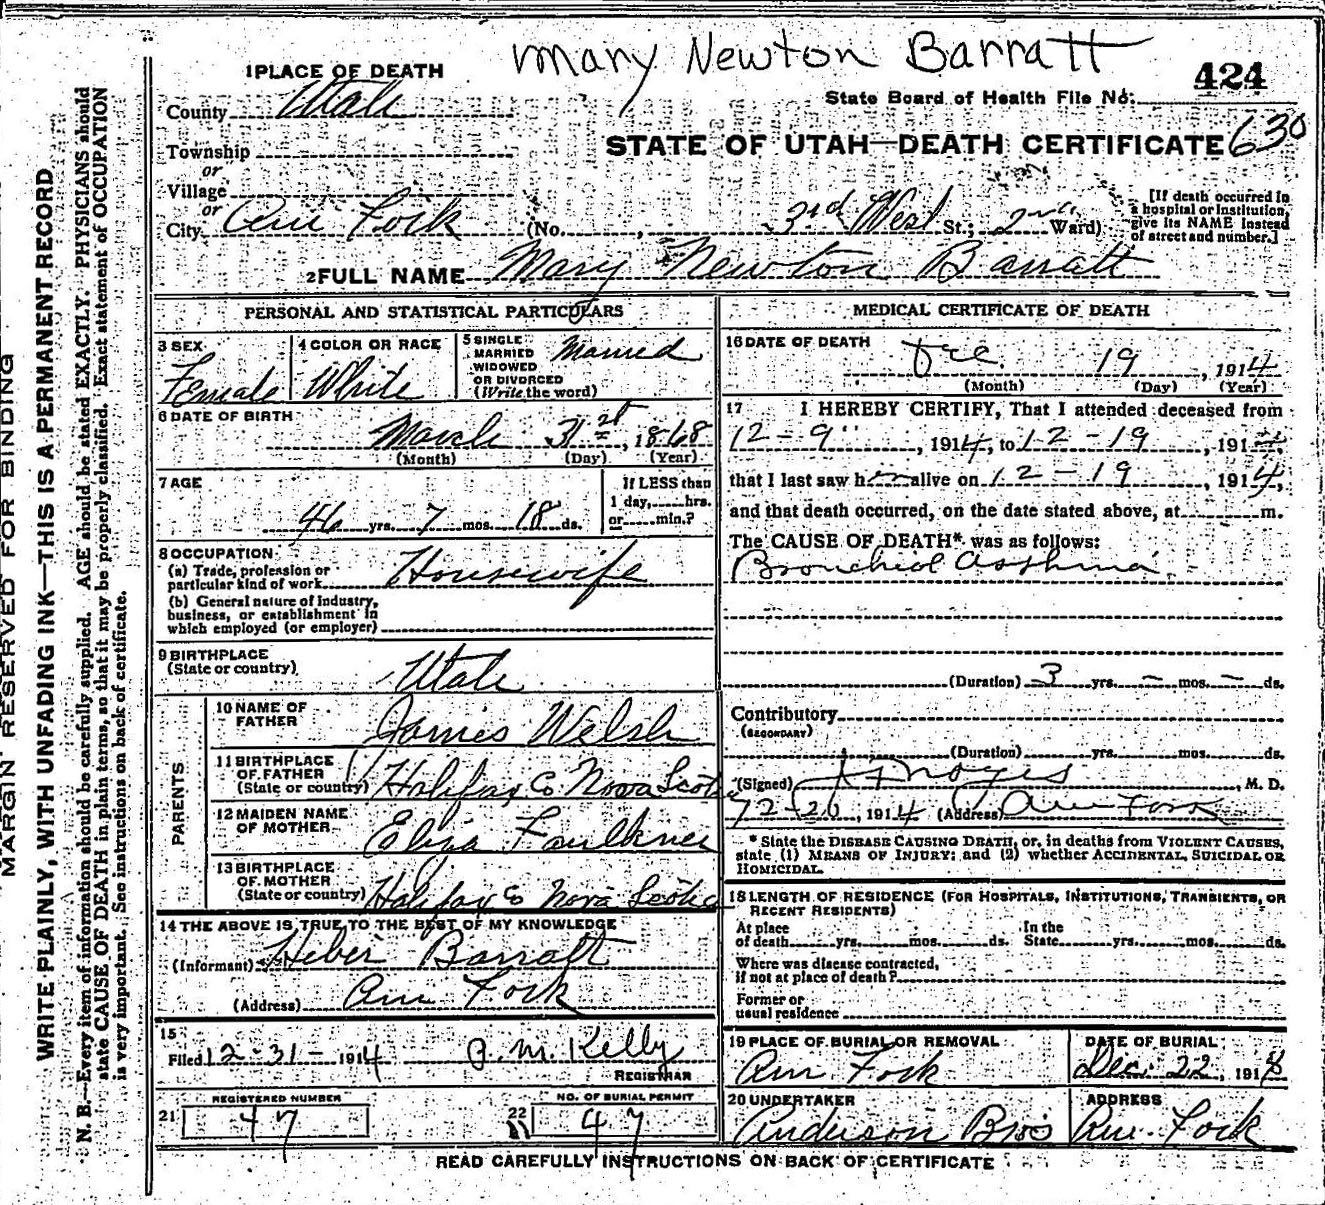 Mary Newton Barratt
1 PLACE OF DEATH
424
County Utah
State Board of Health File No.
Township
STATE OF UTAH—DEATH CERTIFICATE 630
or
Village
or
City Am Fork (No. , 3rd West St.; 2nd Ward)
[If death occurred in a hospital or institution, give its NAME instead of street and number.]
2 FULL NAME Mary Newton Barratt
PERSONAL AND STATISTICAL PARTICULARS
3 SEX
Female
4 COLOR OR RACE
White
5 SINGLE
MARRIED
WIDOWED
OR DIVORCED
(Write the word)
Married
6 DATE OF BIRTH
March 31st, 1868
(Month) (Day) (Year)
7 AGE
46 yrs. 7 mos. 18 ds.
If LESS than
1 day, hrs.
or min.?
8 OCCUPATION
(a) Trade, profession or
particular kind of work Housewife
(b) General nature of industry,
business, or establishment in
which employed (or employer)
9 BIRTHPLACE
(State or country)
Utah
PARENTS
10 NAME OF
FATHER
James Welsh
11 BIRTHPLACE
OF FATHER
(State or country) Halifax Co Nova Scotia
12 MAIDEN NAME
OF MOTHER
Eliza Faulkner
13 BIRTHPLACE
OF MOTHER
(State or country) Halifax Co Nova Scotia
14 THE ABOVE IS TRUE TO THE BEST OF MY KNOWLEDGE
(Informant) Heber Barratt
(Address) Am Fork
15
Filed 12-31- 1914 P. M. Kelly
REGISTRAR
REGISTERED NUMBER
21 47
NO. OF BURIAL PERMIT
22 47
MEDICAL CERTIFICATE OF DEATH
16 DATE OF DEATH
Dec. 19, 1914
(Month) (Day) (Year)
17 I HEREBY CERTIFY, That I attended deceased from
12-9", 1914, to 12-19, 1914
that I last saw her alive on 12-19, 1914,
and that death occurred, on the date stated above, at m.
The CAUSE OF DEATH* was as follows:
Bronchial Asthma
(Duration) 3 yrs. – mos. – ds.
Contributory
(SECONDARY)
(Duration) yrs. mos. ds.
(Signed) Noyes, M. D.
12-20, 1914 (Address) Am Fork
* State the DISEASE CAUSING DEATH, or, in deaths from VIOLENT CAUSES,
state (1) MEANS OF INJURY; and (2) whether ACCIDENTAL, SUICIDAL OR
HOMICIDAL.
18 LENGTH OF RESIDENCE (FOR HOSPITALS, INSTITUTIONS, TRANSIENTS, OR
RECENT RESIDENTS)
At place
of death yrs. mos. ds.
In the
State yrs. mos. ds.
Where was disease contracted,
if not at place of death?
Former or
usual residence
19 PLACE OF BURIAL OR REMOVAL
Am Fork
DATE OF BURIAL
Dec. 22, 191
20 UNDERTAKER
Anderson Bros
ADDRESS
Am Fork
READ CAREFULLY INSTRUCTIONS ON BACK OF CERTIFICATE
MARGIN RESERVED FOR BINDING
WRITE PLAINLY, WITH UNFADING INK—THIS IS A PERMANENT RECORD
N. B.—Every item of information should be carefully supplied. AGE should be stated EXACTLY. PHYSICIANS should
state CAUSE OF DEATH in plain terms, so that it may be properly classified. Exact statement of OCCUPATION
is very important. See instructions on back of certificate.